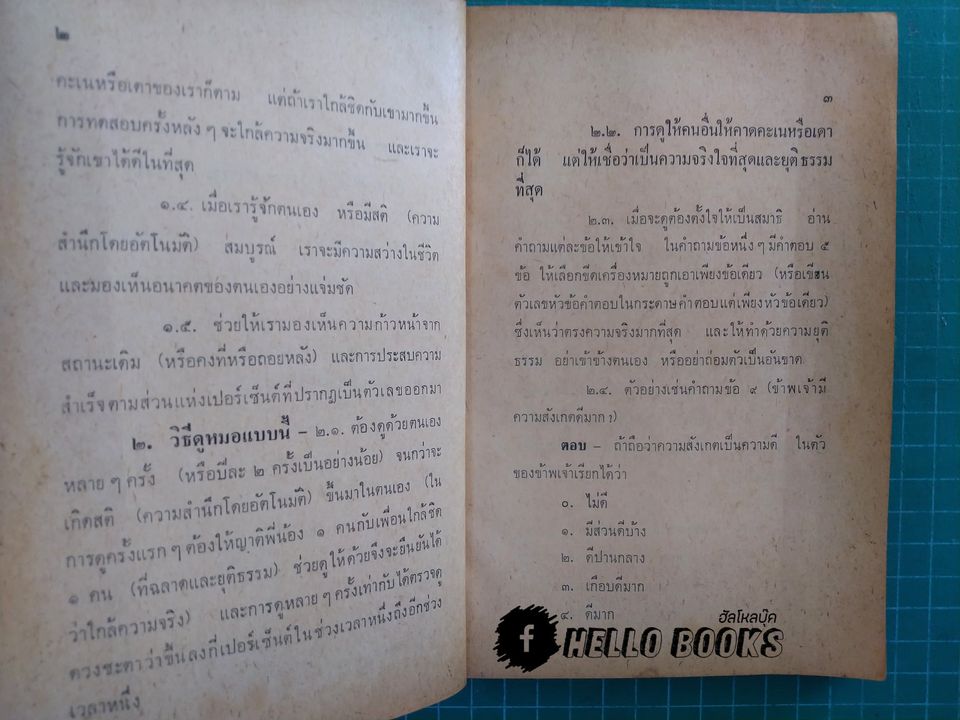 ๒
คะเนหรือเดาของเราก็ตาม แต่ถ้าเราใกล้ชิดกับเขามากขึ้น
การทดสอบครั้งหลัง ๆ จะใกล้ความจริงมากขึ้น และเราจะ
รู้จักเขาได้ดีในที่สุด
๑.๔. เมื่อเรารู้จักตนเอง หรือมีสติ (ความ
สำนึกโดยอัตโนมัติ) สมบูรณ์ เราจะมีความสว่างในชีวิต
และมองเห็นอนาคตของตนเองอย่างแจ่มชัด
๑.๕. ช่วยให้เรามองเห็นความก้าวหน้าจาก
สถานะเดิม (หรือคงที่หรือถอยหลัง) และการประสบความ
สำเร็จตามส่วนแห่งเปอร์เซ็นต์ที่ปรากฏเป็นตัวเลขออกมา
๒. วิธีดูหมอแบบนี้ – ๒.๑. ต้องดูด้วยตนเอง
หลาย ๆ ครั้ง (หรือปีละ ๒ ครั้งเป็นอย่างน้อย) จนกว่าจะ
เกิดสติ (ความสำนึกโดยอัตโนมัติ) ขึ้นมาในตนเอง (ใน
การดูครั้งแรก ๆ ต้องให้ญาติพี่น้อง ๑ คนกับเพื่อนใกล้ชิด
๑ คน (ที่ฉลาดและยุติธรรม) ช่วยดูให้ด้วยจึงจะยืนยันได้
ว่าใกล้ความจริง) และการดูหลาย ๆ ครั้งเท่ากับได้ตรวจดู
ดวงชะตาว่าขึ้นลงกี่เปอร์เซ็นต์ในช่วงเวลาหนึ่งถึงอีกช่วง
เวลาหนึ่ง
๓
๒.๒. การดูให้คนอื่นให้คาดคะเนหรือเดา
ก็ได้ แต่ให้เชื่อว่าเป็นความจริงใจที่สุดและยุติธรรม
ที่สุด
๒.๓. เมื่อจะดูต้องตั้งใจให้เป็นสมาธิ อ่าน
คำถามแต่ละข้อให้เข้าใจ ในคำถามข้อหนึ่ง ๆ มีคำตอบ ๕
ข้อ ให้เลือกขีดเครื่องหมายถูกเอาเพียงข้อเดียว (หรือเขียน
ตัวเลขหัวข้อคำตอบในกระดาษคำตอบแต่เพียงหัวข้อเดียว)
ซึ่งเห็นว่าตรงความจริงมากที่สุด และให้ทำด้วยความยุติ
ธรรม อย่าเข้าข้างตนเอง หรืออย่าถ่อมตัวเป็นอันขาด
๒.๔. ตัวอย่างเช่นคำถามข้อ ๙ (ข้าพเจ้ามี
ความสังเกตดีมาก ?)
ตอบ – ถ้าถือว่าความสังเกตเป็นความดี ในตัว
ของข้าพเจ้าเรียกได้ว่า
๐. ไม่ดี
๑. มีส่วนดีบ้าง
๒. ดีปานกลาง
๓. เกือบดีมาก
๔. ดีมาก
ฮัลโหลบุ๊ค
f HELLO BOOKS